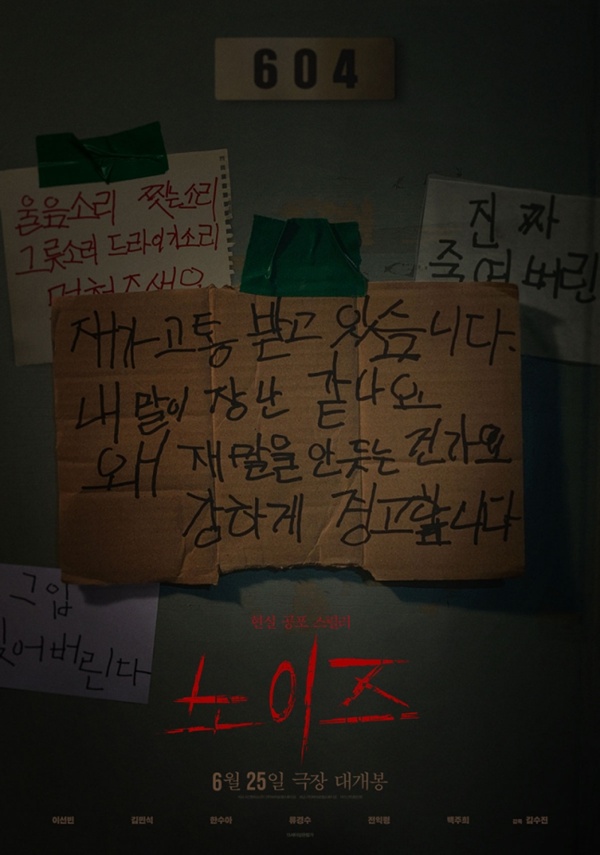 604
울음소리 찢는소리
그릇소리 드라이기소리
멈춰주세요
진짜
죽여버린
제가 고통 받고 있습니다.
내 말이 장난 같나요
왜 제 말을 안 듣는 건가요
강하게 경고합니다
그 입
찢어버린다
현실 공포 스릴러
노이즈
6월 25일 극장 대개봉
이선빈 김민석 한수아 류경수 전익령 백주희 감독 김수진